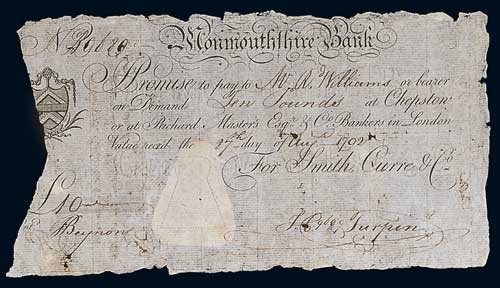 Monmouthshire Bank
Promise to pay to Mr. Rd. Williams or bearer
on Demand Ten Pounds at Chepstow
or at Richard Masters Esqr. & Co. Bankers in London
Value recd. the 27th day of Augt. 1792
For Smith, Curre, & Co.
£10
Beynon
Turpin